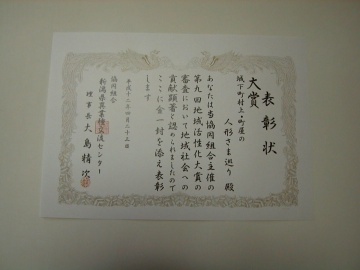 表彰状
大賞
城下町村上・町屋の
人形さま巡り 殿
あなたは当協同組合主催の
第九回地域活性化大賞の
審査において地域社会への
貢献顕著と認められましたので
ここに金一封を添え表彰
します
平成十二年四月二十三日
協同組合
新潟県異業種交流センター
理事長 大島精次